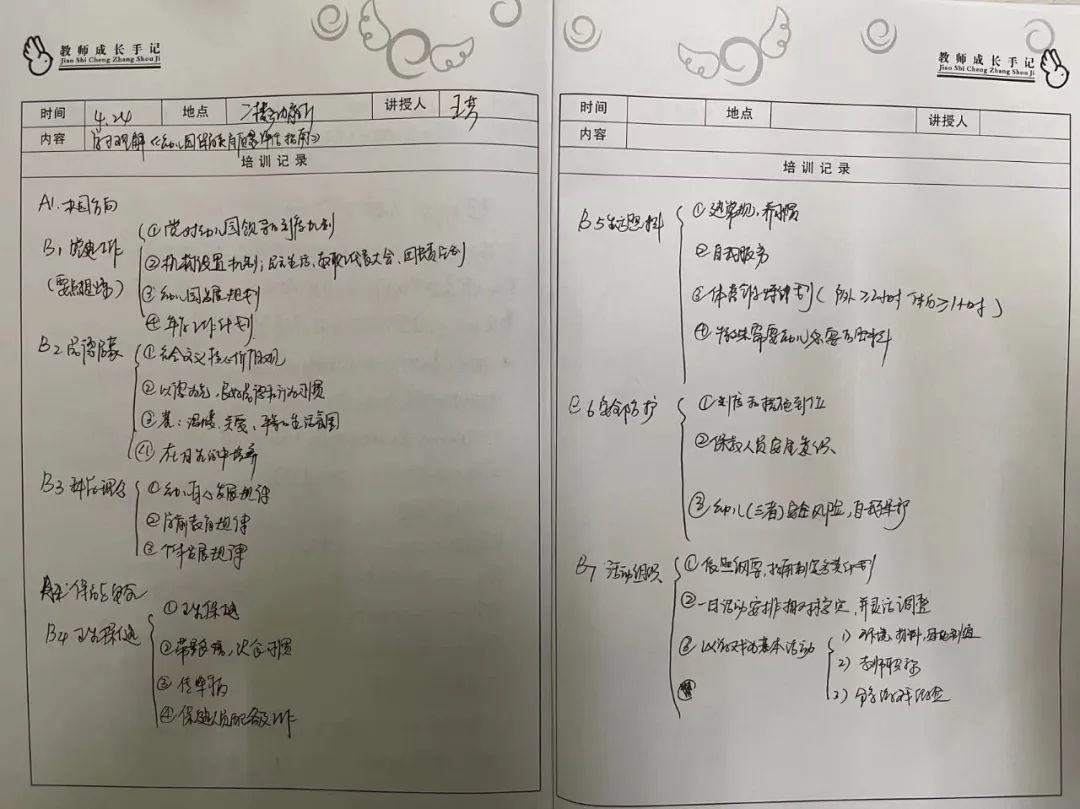 教师成长手记
Jiao Shi Cheng Zhang Shou Ji
时间 4.24 地点 二楼 讲授人 王
内容 学习理解《幼儿园保育教育质量评估指南》
培训记录
A1.办园方向
B1 党建工作
①党对幼儿园领导的制度机制
②机构设置机制；民主生活、教职工代表大会、
(要点)
③幼儿园发展规划
④年度工作计划
B2 品德启蒙
①社会主义核心价值观
②以德为先，良好品德和行为习惯
③温暖、关爱、平等的生活氛围
④在日常生活中培养
B3 科学理念
①幼儿身心发展规律
②学前教育规律
③个体发展规律
A2:保育与安全
B4 卫生保健
①卫生保健
②带量食谱，饮食习惯
③传染病
④保健人员配备及工作
教师成长手记
Jiao Shi Cheng Zhang Shou Ji
时间 地点 讲授人
内容
培训记录
B5 生活照料
①建常规，养习惯
②自我服务
③体育锻炼计划(户外≥2小时 体育≥1小时)
④特殊需要幼儿
B6 安全防护
①制度和措施到位
②保教人员安全意识
③幼儿(三者)安全风险，自我保护
B7 活动组织
①依照纲要，指南制定各类计划
②一日活动安排相对稳定，并灵活调整
③以游戏为基本活动
1)环境，材料，
2)教师
3)分享游戏